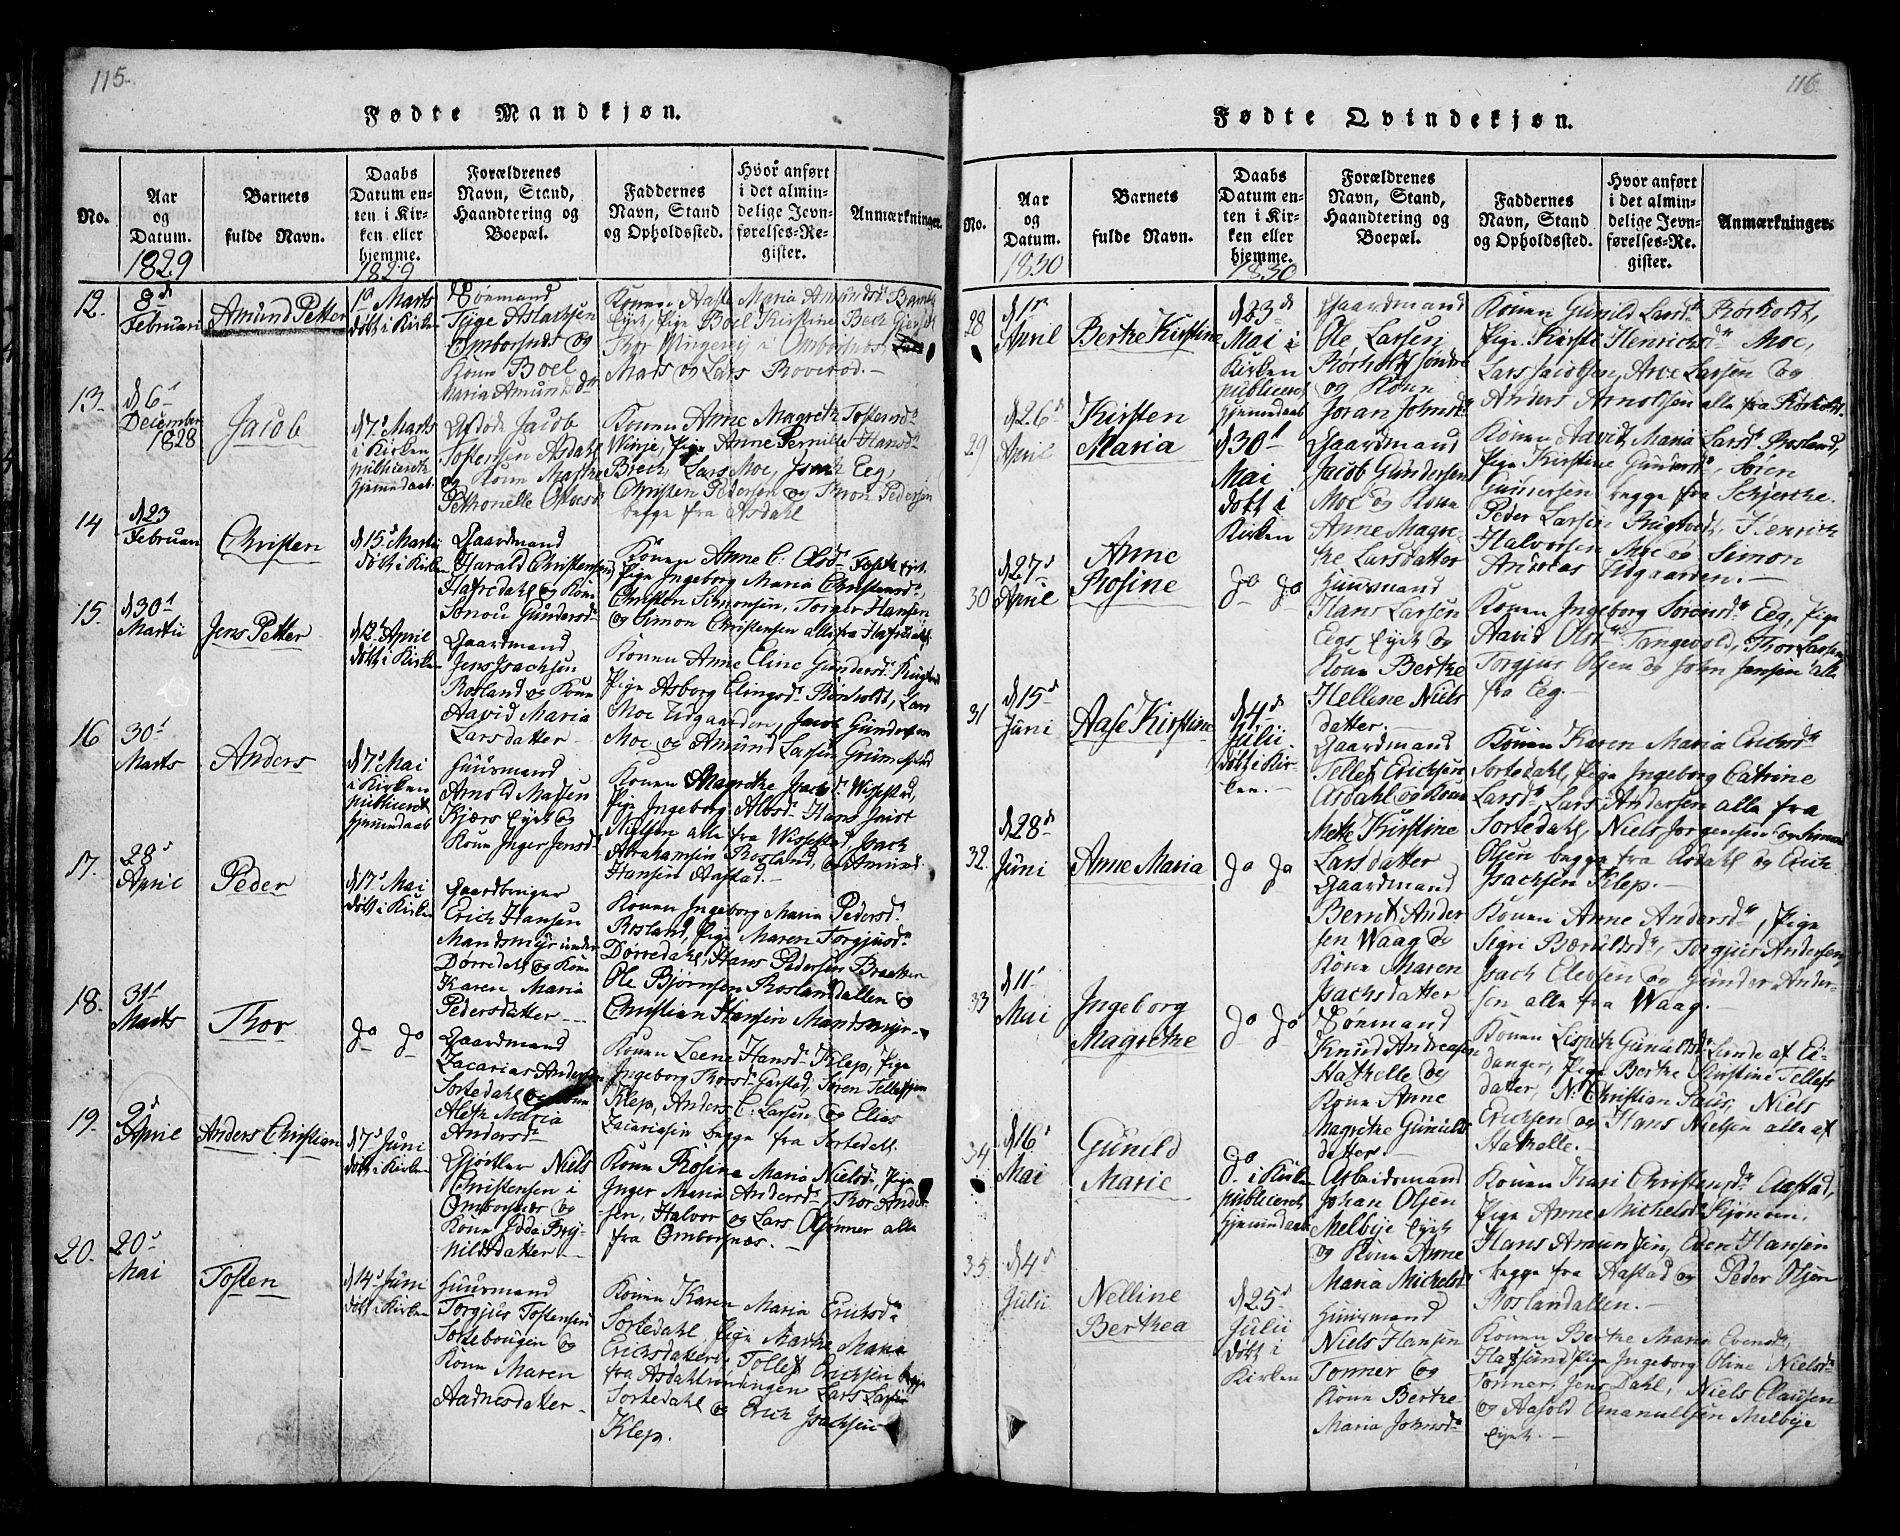 115.
Fødte Mandkjøn.
No.
Aar
og
Datum.
1829
Barnets
fulde Navn.
Daabs
Datum en-
ten i Kir-
ken eller
hjemme.
1829
Forældrenes
Navn, Stand,
Haandtering og
Boepæl.
Faddernes
Navn, Stand
og Opholdssted.
Hvor anført
i det almin-
delige Jevn-
førelses-Re-
gister.
Anmærkninger.
12.
8d
Februari
Amund Petter
1d Marts
døbt i Kirken
Sømand
Omborsnæs og
Konn Boel
Maria Amundsdr
Konen Aase Maria Amundsd
Eyet, Pige Boel Kirstine Bech
Mads og Lars Roverod.
13.
d 6t
December
1828
Jacob
d 7d Marts
i Kirken
publiceret
hjemmedaab
Afdøde Jacob
Tostensen Asdahl
og Konn Marthe
Pethronelle
Konen Anne Magreth Tostensd
Winje, Pige Anne Pernille Hansd
Lars Moe, Eeg,
Christen Pedersen og Thron Pedersen
begge fra Asdahl
14
d 23
Februari
Christen
d 15d Marti
døbt i Kirken
Gaardmand
Harald Christensen
Hafredahl og Konn
Gundersd
Konen Anne C. Olsd
Pige Ingeborg Maria Christensd,
Christen Simonsen, Torger Hansen
og Simon Christensen alle fra
15.
d 30t
Martii
Jens Petter
d 12t April
døbt i Kirken
Gaardmand
Jens Isachsen
Rosland og Konn
Aavid Maria
Larsdatter
Konen Anne Eline Gundersd
Pige Asborg Elingsd Rønholdt, Lars
Moe Udgaarden, Jacob Gundersen
Moe og Amund Larsen
16
30t
Marts
Anders
d 7d Mai
i Kirken
publiceret
hjemmedaab
Huusmand
Arnold Madsen
Kjærs Eyet og
Konn Inger Jensd
Konen Magrethe Isachsd
Pige Ingeborg
Nielsen alle fra Isach
Abrahamsen Rosland, og Amund
Hansen Aastad.
17.
28d
April
Peder
d 17d Mai
døbt i Kirken
Gaardbruger
Erich Hansen
Mandsmyr under
Dørredahl og Konn
Karen Maria
Pedersdatter
Konen Ingeborg Maria Pedersd
Rosland, Pige Maren Torgjusd
Dørredahl, Hans Pedersen
Ole Bjørnsen Roslandallen og
Christian Hansen Mandsmyr
18.
31t
Marts
Thor
do do
Gaardmand
Zacarias Andersen
Sortedahl og Konn
Aleth Maria
Andersd
Konen Leene Hansd Klep, Pige
Ingeborg Thorsd Garstad, Søren Tellefsen
Klep, Anders C. Larsen og Elias
Zacariasen begge fra Sortedahl
19.
2d
April
Anders Christian
d 7d Juni
døbt i Kirken
Niels
Christensen i
Omborsnæs og
Konn
Konn Rosine Maria Nielsd, Pige
Inger Maria Andersd Thor Ander-
sen, Halvor og Lars alle
fra Omborsnæs.
20.
20d
Mai
Tosten
d 14d Juni
døbt i Kirken
Huusmand
Torgjus Tostensen
Sortebougen og
Konn Maren
Aadnesdatter
Konen Karen Maria Erichsd
Sortedahl, Pige Marthe Maria
Erichsdatter, Tollef Erichsen
fra Asdahl Lars Larsen
Sortedahl og Erich Isachsen
Klep.
116
Fødte Qvindekjøn.
No.
Aar
og
Datum.
1830
Barnets
fulde Navn.
Daabs
Datum en-
ten i Kir-
ken eller
hjemme.
1830
Forældrenes
Navn, Stand,
Haandtering og
Boepæl.
Faddernes
Navn, Stand
og Opholdssted.
Hvor anført
i det almin-
delige Jevn-
førelses-Re-
gister.
Anmærkninger.
28
April
Berthe Kirstine
d 23d
Mai i
Kirken
publiceret
hjemmedaab
Gaardmand
Ole Larsen
Rørholdt søndre
og Konn
Joran Johnsd
Konen Gunild Larsd Rørholdt,
Pige Kirsti Henrichsd Moe,
Lars Jacobsen, Arve Larsen og
Anders Arnoldsen alle fra Rørholdt
29
d 26d
April
Kirsten
Maria
d 30t
Mai
døbt i
Kirken
Gaardmand
Jacob Gundersen
Moe og Konn
Anne Magre-
the Larsdatter
Konen Aavid Maria Larsd Rosland,
Pige Kirstine Gundersd, Søren
Gundersen begge fra
Peder Larsen Henrich
Halvorsen Moe og Simon
Andreas Udgaarden.
30
d 27d
April
Anne
Rosine
do do
Huusmand
Hans Larsen
Eegs Eyet og
Konn Berthe
Hellene Niels
datter.
Konen Ingeborg Sørensd Eeg, Pige
Aavid Olsd Tangevold, Thor Larsen
Torgjus Olsen og John Jensen alle
fra Eeg.
31
d 15d
Juni
Aase Kirstine
d 4d
Julii
døbt i Kir-
ken.
Gaardmand
Tellef Erichsen
Asdahl og Konn
Mette Kirstine
Larsdatter
Konen Karen Maria Erichsd
Sortedahl, Pige Ingeborg Catrine
Larsd, Lars Andersen alle fra
Sortedahl, Niels Jorgensen og
Olsen begge fra Asdahl og Erich
Isachsen Klep.
32.
d 28d
Juni
Anne Maria
do do
Gaardmand
Bernt Ander
sen Waag og
Konn Maren
Isachsdatter
Konen Anne Andersd, Pige
Sigri Torgjus Andersen,
Isach Elevsen og Gunder Ander-
sen alle fra Waag.
33
d 11t
Mai
Ingeborg
Magrethe
do do
Sømand
Knud Andreasen
Aathelle og
Konn Anne
Magrethe Gunulds
datter.
Konen Lispeth Gunuldsd Lunde af Ei-
danger, Pige Berthe Kirstine Tellefs
datter, N. Christian Paus, Niels
Erichsen og Hans Nielsen alle af
Aathelle.
34
d 16t
Mai
Gunild
Marie
do
d. i Kirken
publiceret
hjemmedaab
Arbeidsmand
Johan Olsen
Melbye Eyet
og Konn Anne
Maria Michelsd
Konen Kari Christensd Aastad,
Pige Anne Michelsd
Hans Amundsen, Even Hansen
begge fra Aastad og Peder Olsen
Roslandallen.
35
d 4d
Julii
Nelline
Berthea
d 25d
Julii
døbt i
Kirken
Huusmand
Niels Hansen
Tonner og
Konn Berthe
Maria Johnsd
Konen Berthe Maria Evensd,
Hafsund, Pige Ingeborg Oline Nielsd
Tonner, Jens Dahl, Niels Clausen
og Aasold Emanuelsen Melbye
Eyet.